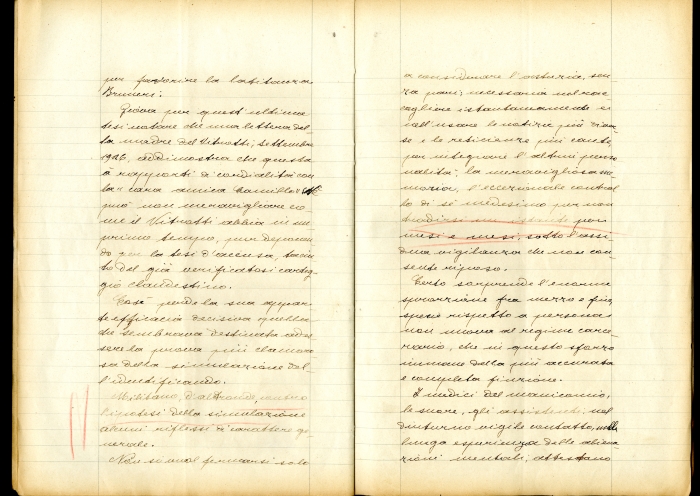 per favorire la latitanza
Bruneri.
Giova per quest'ultima
tesi notare che una lettera del
la madre del Vitrotti, settembre
1926, addimostra che questa
à rapporti di cordialità con
la "cara amica Camilla" e
può non meravigliare co
me il Vitrotti abbia in un
primo tempo, pur deponen
do per la tesi d'accusa, taciu
to del già verificatosi carteg
gio clandestino.
Così perde la sua appar
te efficacia decisiva quella
che sembrava destinata ad es
sere la prova più clamoro
sa della simulazione del
l'identificando.
Militano, d'altronde, contro
l'ipotesi della simulazione
alcuni riflessi di carattere ge
nerale.
Non si vuol fermarsi solo
a considerare l'astuzia, sen
za pari, necessaria nel rac
cogliere istantaneamente e
nell'usare le notizie più
se e le reticenze più caute,
per integrare l'altrui perso
nalità; la meravigliosa me
moria, l'eccezionale control
lo di sè medesimo per non
tradirsi un istante per
mesi e mesi, sotto l'assi
dua vigilanza che non con
sente riposo.
Certo sorprende l'enorme
sproporzione fra mezzo e fine,
specie rispetto a persona
non nuova al regime carce
rario, che in questo sforzo
immane della più accurata
e completa finzione.
I medici del manicomio,
le suore, gli assistenti, nel
diuturno vigile contatto, nella
lunga esperienza delle aliena
zioni mentali, attestano